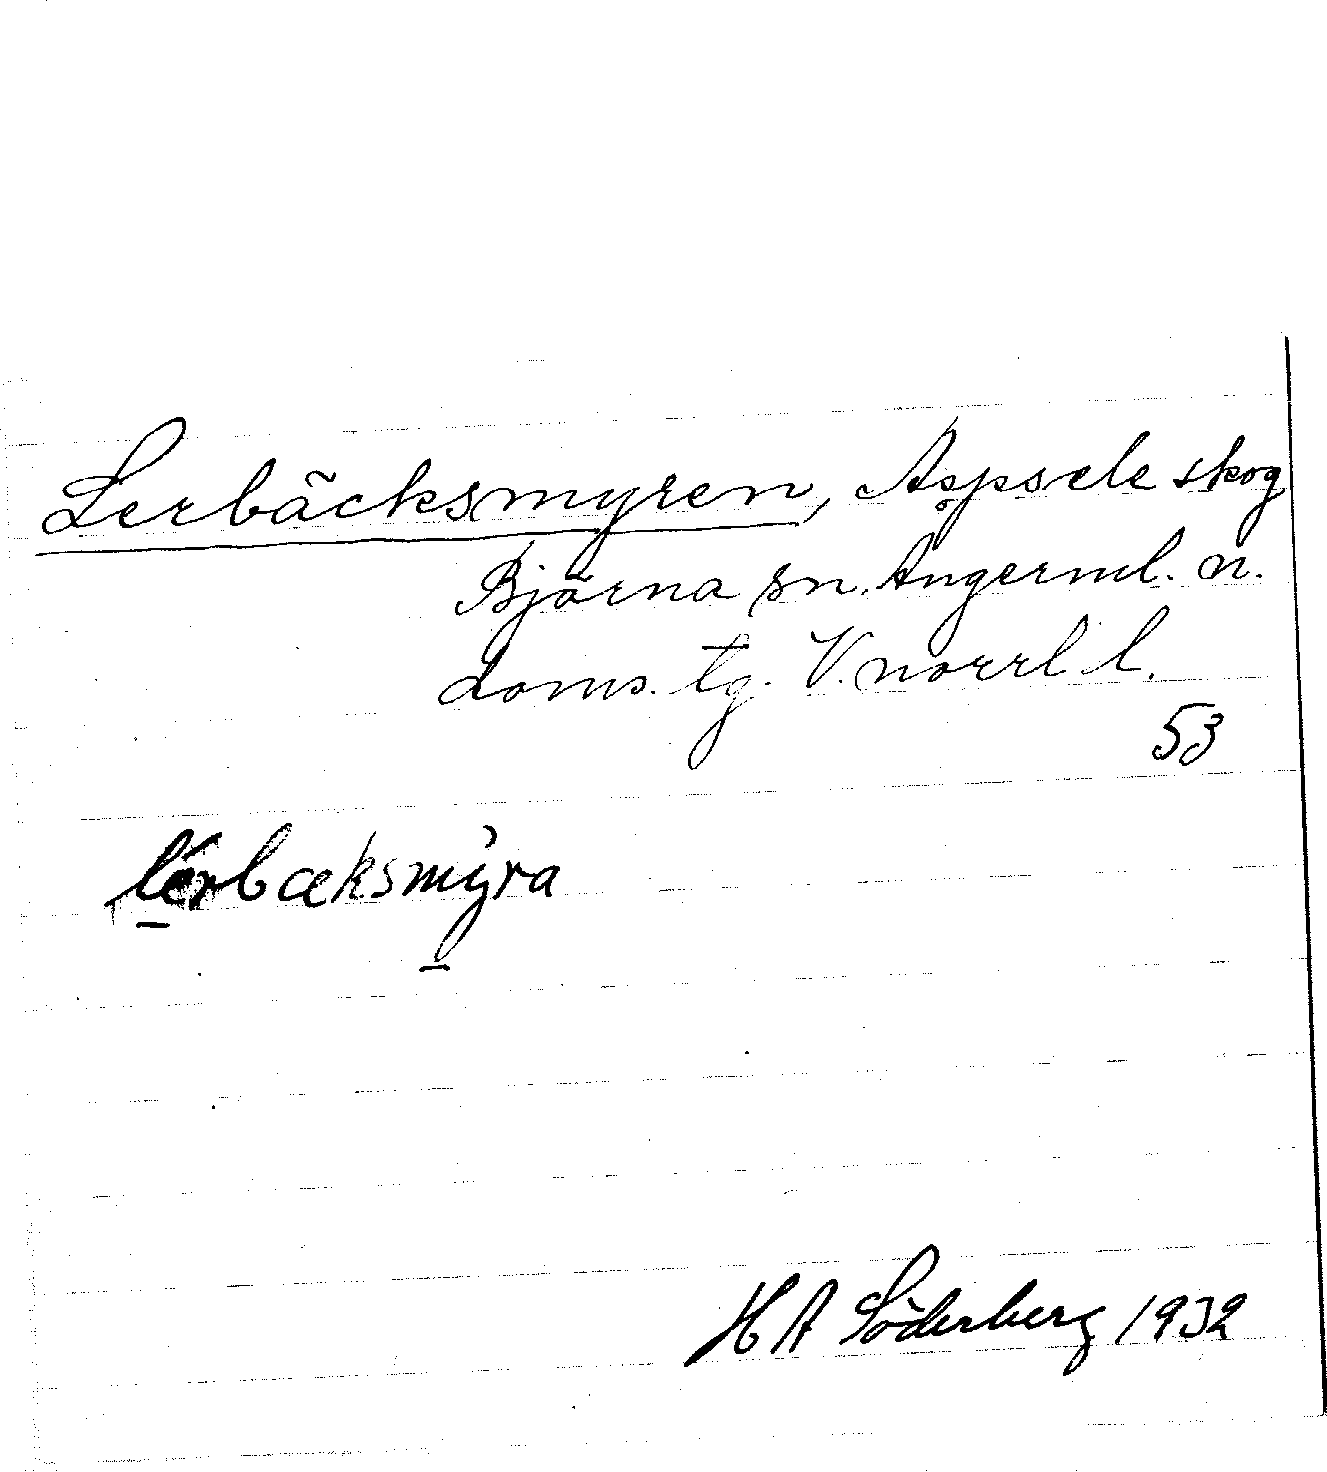 Lerbäcksmyren, Aspsele skog
Björna sn. Ångerml. n.
doms. tg. V. norrl l.
53
lérbæksmỳra
H A Söderberg 1932